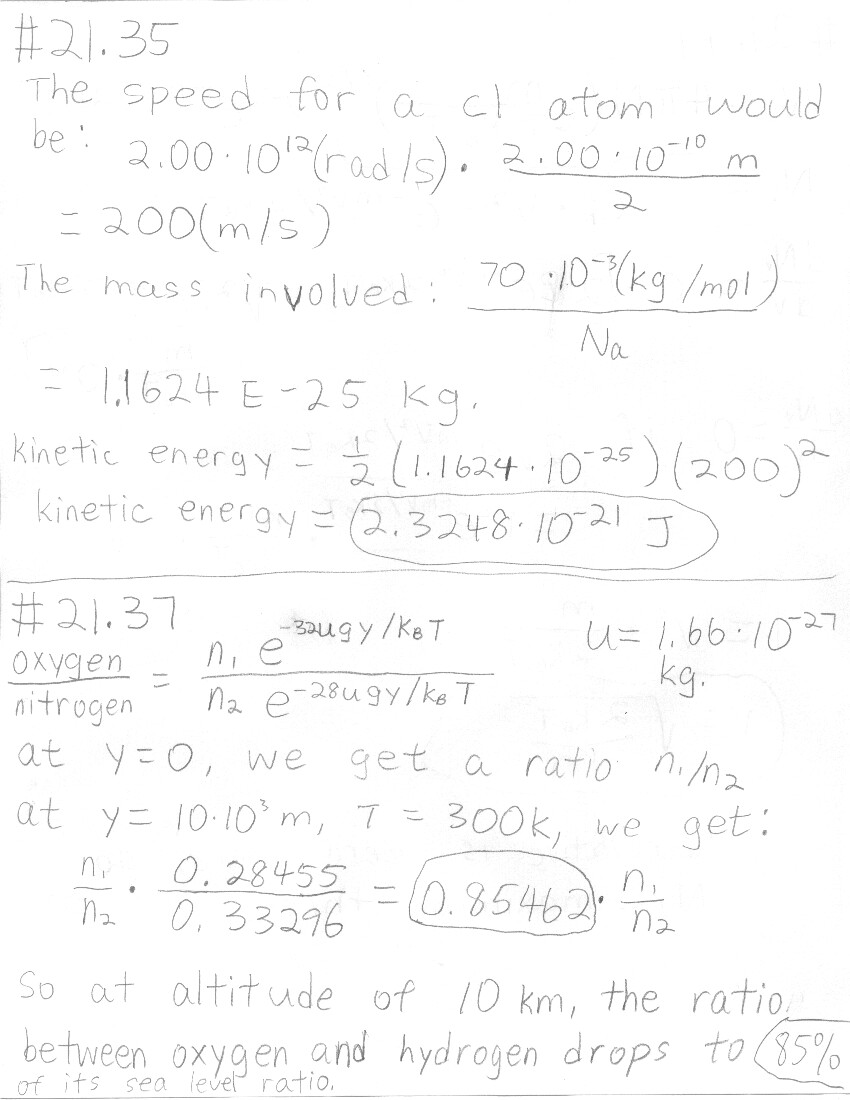 #21.35
The speed for a cl atom would
be: 2.00·10¹²(rad/s) · 2.00·10⁻¹⁰ m / 2
= 200(m/s)
The mass involved: 70·10⁻³(kg/mol) / Na
= 1.1624 E-25 kg.
kinetic energy = 1/2 (1.1624·10⁻²⁵)(200)²
kinetic energy = 2.3248·10⁻²¹ J
#21.37
oxygen/nitrogen = n₁ e^(-32ugy/K_B T) / n₂ e^(-28ugy/k_B T)
u = 1.66·10⁻²⁷
kg.
at y=0, we get a ratio n₁/n₂
at y= 10·10³ m, T = 300k, we get:
n₁/n₂ · 0.28455/0.33296 = 0.85462 · n₁/n₂
So at altitude of 10 km, the ratio
between oxygen and hydrogen drops to 85%
of its sea level ratio.